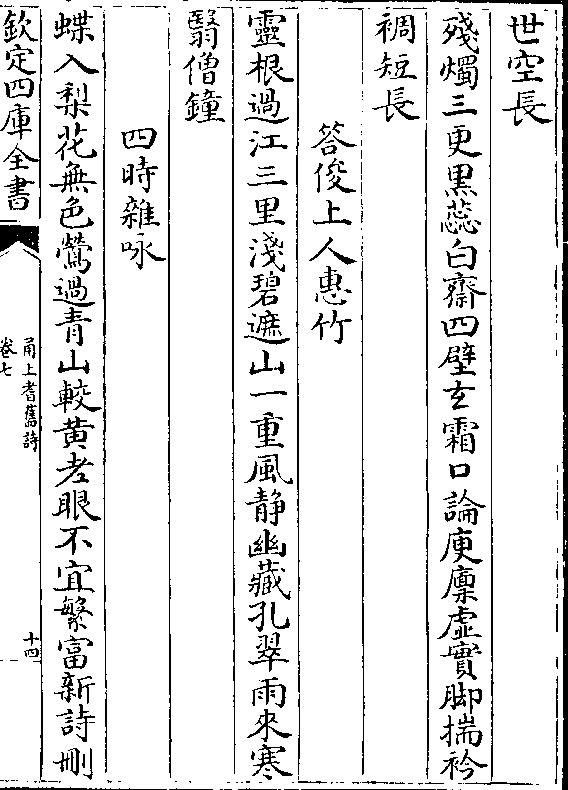 世空長
殘燭三更黒蕊白齋四壁玄霜口論庾廪虚實脚揣衿
裯短長
答俊上人惠竹
靈根過江三里淺碧遮山一重風静幽藏孔翠雨來寒
翳僧鐘
四時雜咏
蝶入梨花無色鶯過青山較黄老眼不宜繁富新詩刪
欽定四庫全書
甬上耆舊詩
卷七
十四